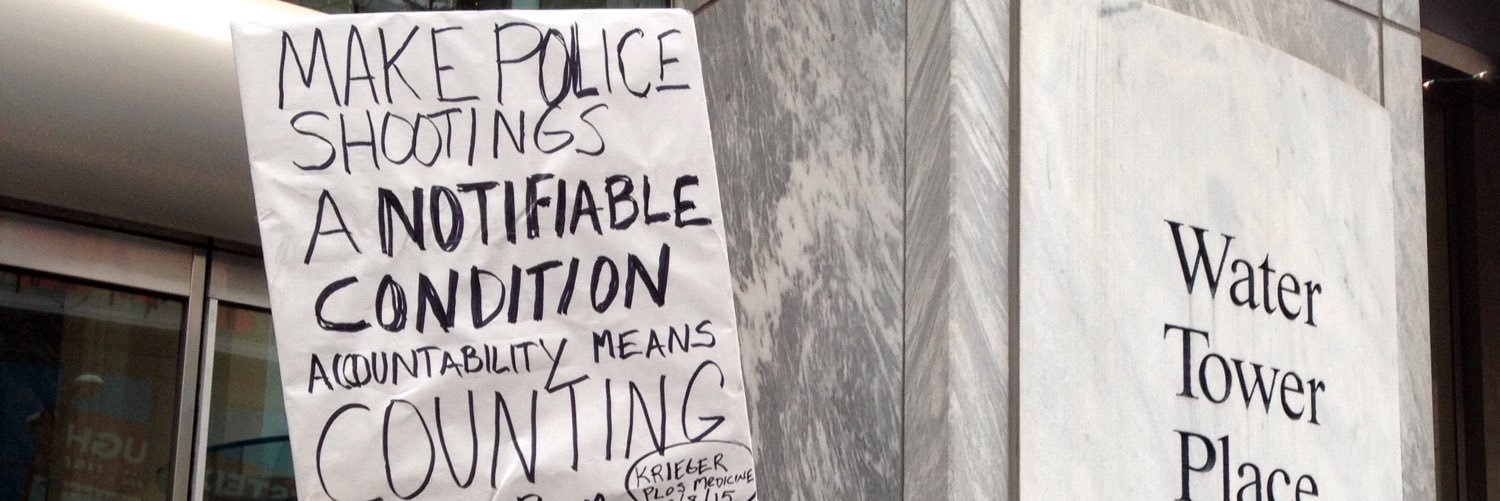 MAKE POLICE
SHOOTINGS
A NOTIFIABLE
CONDITION
ACCOUNTABILITY MEANS
COUNTING
KRIEGER
PLOS MEDICINE
Water
Tower
Place
UGH